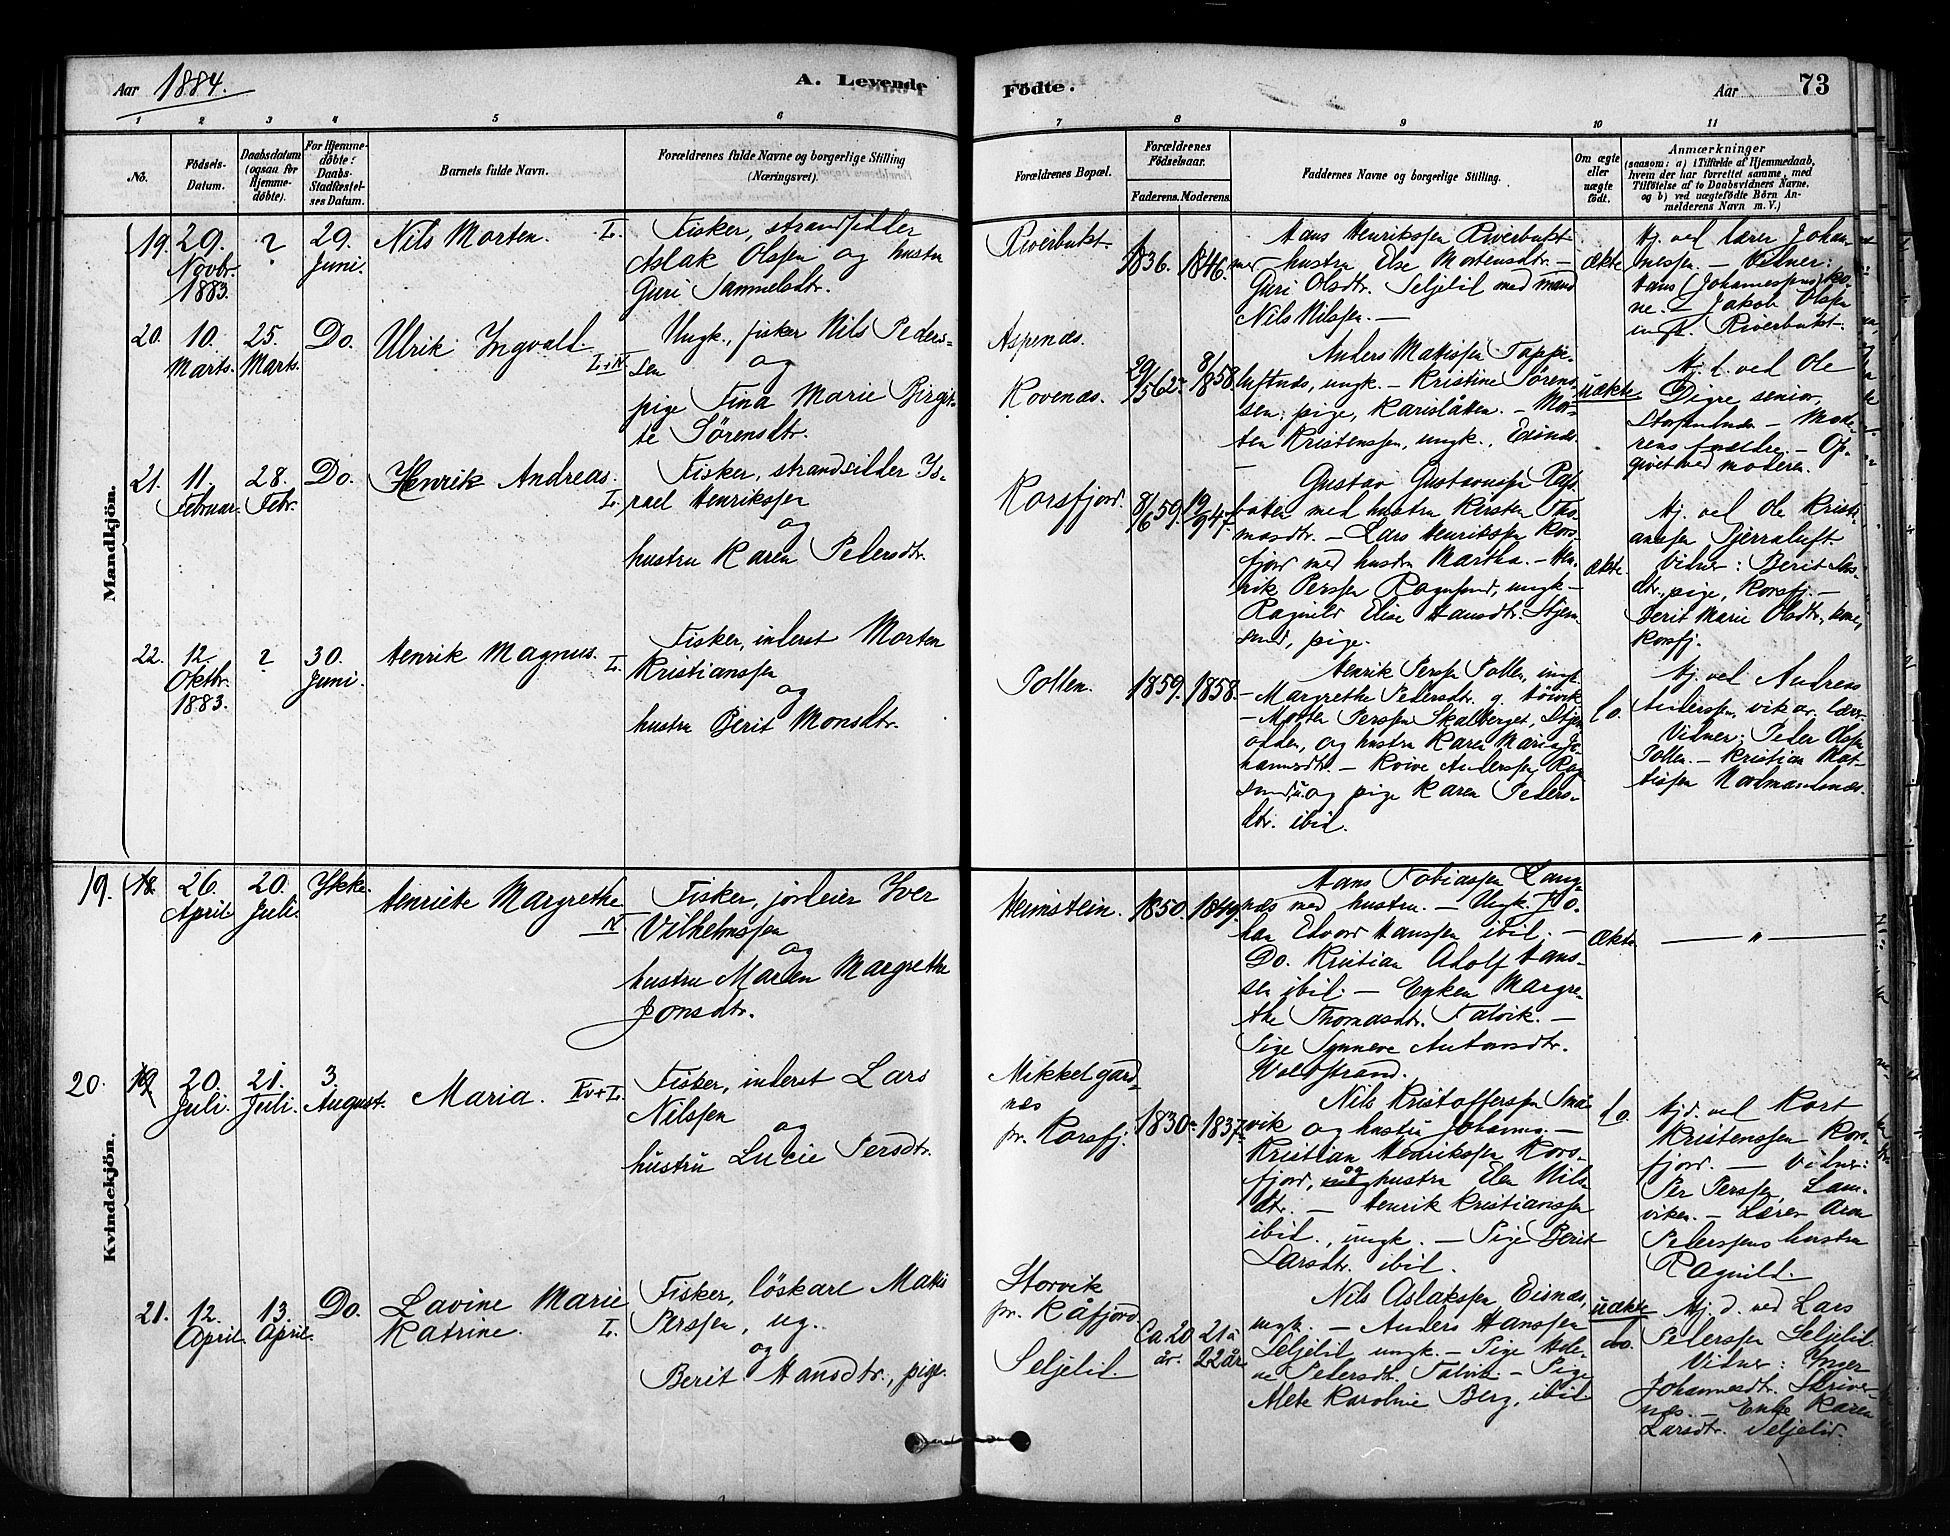 Aar 1884.
A. Levende
Födte.
Aar
73
1 2 3 4 5 6 7 8 9 10 11
No.
Födsels-
Datum.
Daabsdatum
(ogsaa for
Hjemme-
döbte).
For Hjemme-
döbte:
Daabs-
Stadfæstel-
ses Datum.
Barnets fulde Navn.
Forældrenes fulde Navne og borgerlige Stilling
(Næringsvei).
Forældrenes Bopæl.
Forældrenes
Födselsaar.
Faderens. Moderens.
Faddernes Navne og borgerlige Stilling.
Om ægte
eller
uægte
födt.
Anmærkninger
(saasom: a) i Tilfælde af Hjemmedaab,
hvem der har forrettet samme, med
Tilföielse af to Daabsvidners Navne,
og b) ved uægtefödte Börn An-
melderens Navn m. V.)
Mandkjön.
19.
29.
Novbr.
1883.
?
29.
Juni.
Nils Morten. L.
Fisker, strandsidder
Aslak Olsen og hustru
Guri Sammelsdtr.
Riverbukt
1836. 1846.
Hans Henriksen Riverbukt
med hustru Else Mortensdtr. –
Guri Olsdtr. Seljelid med mand
Nils Nilssen. –
ækte
Hj. ved lærer Johan-
nessen. – Vidner:
Hans Johannessens ko-
ne. – Jakob Olsen
ungk. Riverbukt.
20.
10.
Marts.
25.
Marts.
Do.
Ulrik Ingvald. L+N
Ungk., fisker Nils Peders-
sen og
pige Fina Marie Birgit-
te Sörensdtr.
Aspenæs.
Kovenæs.
29/5 62 8/1858
Anders Matissen Toppe-
luftnæs, ungk. – Kristine Sörens-
sen, pige, Karislåtten. – Mor-
ten Kristenssen, ungk., Eidnæs
–
uækte
Hj. d. ved Ole
Digre senior,
– Mode-
rens forældre. – Op-
givet ved moderen.
21.
11.
Februar.
28.
Febr.
Do.
Henrik Andreas. L.
Fisker, strandsidder Is-
rael Henrikssen
og
hustru Karen Pedersdtr.
Korsfjord.
8/6 59. 19/9 47.
Gustav Gustavussen Rafs-
boten med hustru Kersten Tho-
masdtr. – Lars Henrikssen Kors-
fjord med hustru Martha. – Hen-
rik Perssen Rognsund, ungk. –
Ragnild Elise Hansdtr. Stjern-
sund, pige.
ækte.
Hj. ved Ole Kristi-
anssen Tjerraluft.
Vidner: Berit Lars-
dtr., pige, Korsfj. –
Berit Marie Olsdtr., kone,
Korsfj.
22.
12.
Oktbr.
1883.
?
30.
Juni.
Henrik Magnus. L.
Fisker, inderst Morten
Kristianssen
og
hustru Berit Monsdtr.
Pollen.
1859. 1858.
Henrik Perssen Pollen, ungk.
– Margrethe Pedersdtr. g.
– Morten Perssen Skalberget, Stjern-
odden, og hustru Karen Marie Jo-
hannsdtr. – Anderssen Rog-
sund, og pige Karen Peders-
dtr. ibid.
do.
Hj. ved Andreas
Anderssen, vikar. lærer.
Vidner: Peder Olsen
Pollen. – Kristian Mat-
tissen Nordmandsnæs.
Kvindekjön.
19. 18.
26.
April.
20.
Juli.
Ikke.
Henriette Margrethe N.
Fisker, jordeier Iver
Vilhelmssen
og
hustru Maren Margrethe
Jonsdtr.
Heimstein.
1850. 1849.
Hans Tobiassen Lang-
næs med hustru. – Ungk. Jo-
han Edvard Hanssen ibid. –
Do. Kristian Adolf Hans-
sen ibid. – Enken Margre-
the Thomasdtr. Talvik. –
Pige Synnøve Antonsdtr.
Voldstrand.
ækte
— " —
20. 19
20.
Juli.
21.
Juli.
3.
August.
Maria. Kv+L.
Fisker, inderst Lars
Nilssen
og
hustru Lucie Persdtr.
Mikkelgard-
næs
pr. Korsfj.
1830 1837
Nils Kristofferssen Små-
vik og hustru Johanna. –
Kristian Hedrikssen Kors-
fjord, og hustru Elen Nils-
dtr. – Henrik Kristianssen
ibid., ungk. – Pige Berit
Larsdtr. ibid.
do.
Hjd. ved Kort
Kristenssen Kors-
fjord. – Vidner:
Per Perssen, Lam-
viken. – Lærer Aron
Pederssens hustru
Ragnild.
21.
12.
April.
13.
April.
Do.
Lavine Marie
Katrine. L.
Fisker, löskarl Matis
Perssen, ug.
og
Berit Hansdtr., pige.
Storvik
pr. Kåfjord
Seljelid.
Ca 20
år.
21 à
22 år
Nils Aslaksen Eidnæs,
ungk. – Anders Hanssen
Seljelid ungk. – Pige Hele-
ne Pedersdtr. Talvik – Pige
Mete Karoline Berg, ibid
uækte
do.
Hj. d. ved Lars
Pederssen Seljelid.
Vidner: Inger
Johannesdtr. Skriver-
næs. – Enke Karen
Larsdtr. Seljelid.